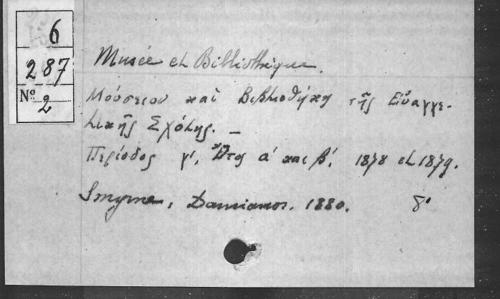 6
287
Nº 2
Musée et Bibliothéque.
Μούσειον καὶ Βιβλιοθήκη τῆς Εὐαγγε-
λικῆς Σχόλης. —
Περίοδος γ', Ἔτος α' και β', 1878 et 1879.
Smyrne, Damianos. 1880. 8º